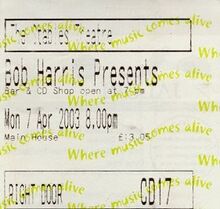 The Stables Theatre
Bob Harris Presents
Bar & CD Shop open at 7pm
Mon 7 Apr 2003 8.00pm
Main House £13.05
RIGHT DOOR CD17
Where music comes alive
Where music comes alive
Where music comes alive
Where music comes alive